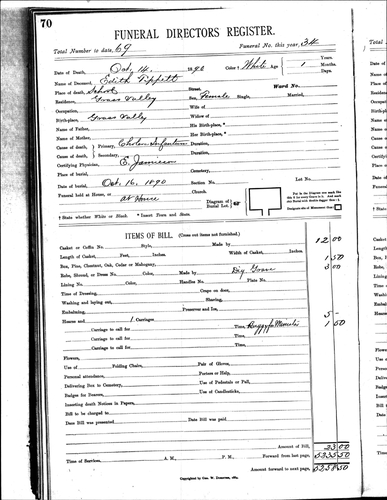 70
FUNERAL DIRECTORS REGISTER.
Total Number to date, 69 Funeral No. this year, 34
Date of Death, Oct. 14, 1890 Color † White Age 1 Years. Months. Days.
Name of Deceased, Edith Tippett
Place of death, School Street. Ward No.
Residence, Grass Valley Female Single, Married,
Occupation, Wife of
Birth-place, Grass Valley Widow of
Name of Father, His Birth-place, *
Name of Mother, Her Birth-place, *
Cause of death, Primary, Cholera Infantum Duration,
Cause of death, Secondary, Duration,
Certifying Physician, E. Jamieson
Place of burial, Cemetery,
Date of burial, Oct. 16, 1890 Section No. Lot No.
Funeral held at Home, or Church. at House
Diagram of Burial Lot.
† State whether White or Black. * Insert Town and State.
ITEMS OF BILL. (Cross out items not furnished.)
Casket or Coffin No. Style, Made by 12 00
Length of Casket, Feet, Inches. Width of Casket, Inches.
Box, Pine, Chestnut, Oak, Cedar or Mahogany, 1 50
Robe, Shroud, or Dress No. Color, Made by Dig Grave 3 00
Lining No. Color, Handles No. Plate No.
Time of Dressing, Crape on door,
Washing and laying out, Shaving,
Embalming, Preserve and Ice,
Hearse and / Carriages. 5 –
Carriage to call for Time, 1 50
Carriage to call for Time,
Carriage to call for Time,
Flowers,
Use of Folding Chairs, Pair of Gloves,
Personal attendance, Porters or Help,
Delivering Box to Cemetery, Use of Pedestals or Pall,
Badges for Bearers, Use of Candlesticks,
Inserting death Notices in Papers,
Bill to be charged to
Date Bill was presented Date Bill was paid
Amount of Bill, 23 00
Time of Services, A. M., P. M., Forward from last page,
Amount forward to next page,